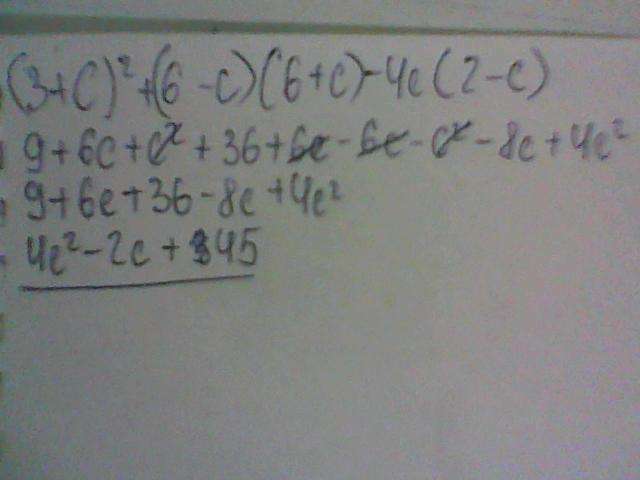 (3+c)²+(6-c)(6+c)-4c(2-c)
9+6c+c²+36+6c-6c-c²-8c+4c²
9+6c+36-8c+4c²
4c²-2c+45